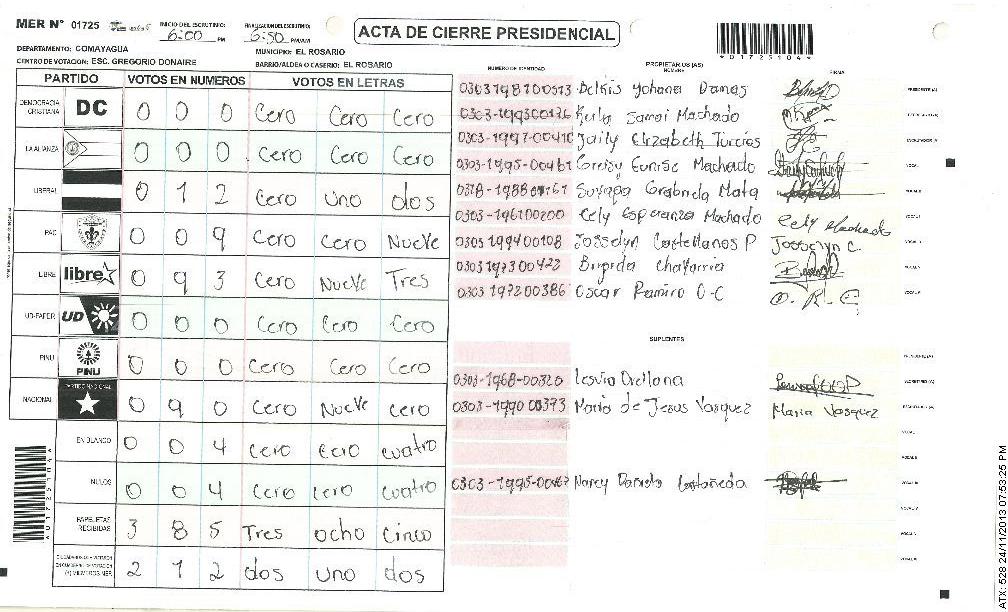 MER N° 01725
INICIO DEL ESCRUTINIO: 6:00 PM
FINALIZACION DEL ESCRUTINIO: 6:50 PM/AM
ACTA DE CIERRE PRESIDENCIAL
*01725104*
DEPARTAMENTO: COMAYAGUA
MUNICIPIO: EL ROSARIO
CENTRO DE VOTACION: ESC. GREGORIO DONAIRE
BARRIO/ALDEA O CASERIO: EL ROSARIO
PARTIDO VOTOS EN NUMEROS VOTOS EN LETRAS
DEMOCRACIA CRISTIANA DC 0 0 0 Cero Cero Cero
LA ALIANZA 0 0 0 Cero Cero Cero
LIBERAL 0 1 2 Cero uno dos
PAC 0 0 9 Cero Cero Nueve
LIBRE libre 0 9 3 Cero Nueve Tres
UD-FAPER UD 0 0 0 Cero Cero Cero
PINU PINU 0 0 0 Cero Cero Cero
NACIONAL PARTIDO NACIONAL 0 9 0 Cero Nueve Cero
EN BLANCO 0 0 4 Cero Cero cuatro
NULOS 0 0 4 Cero Cero cuatro
PAPELETAS RECIBIDAS 3 8 5 Tres ocho cinco
2 1 2 dos uno dos
NUMERO DE IDENTIDAD
PROPIETARIOS (AS)
NOMBRE
FIRMA
Belkis Yohana
PRESIDENTE (A)
0303-199300176 Keila Samai Machado
0303-1997-00410 Jaily Elizabeth Turcios
0303-1995-00461 Eunise Machado
VOCAL I
Suyapa Grabiela Mata
0303-196100200 Cely Esperanza Machado Cely Machado
0305199400108 Josselyn Castellanos P Josselyn C.
0303197300422 Brigida Chavarria
0303197200386 Oscar Ramiro O-C O. R. C
SUPLENTES
0303-1968-00320 Lesvia Orellana
SECRETARIO (A)
0303-1990 00373 Maria de Jesus Vasquez Maria Vasquez
Nancy Daniela Castañeda
ATX: 528 24/11/2013 07:53:25 PM